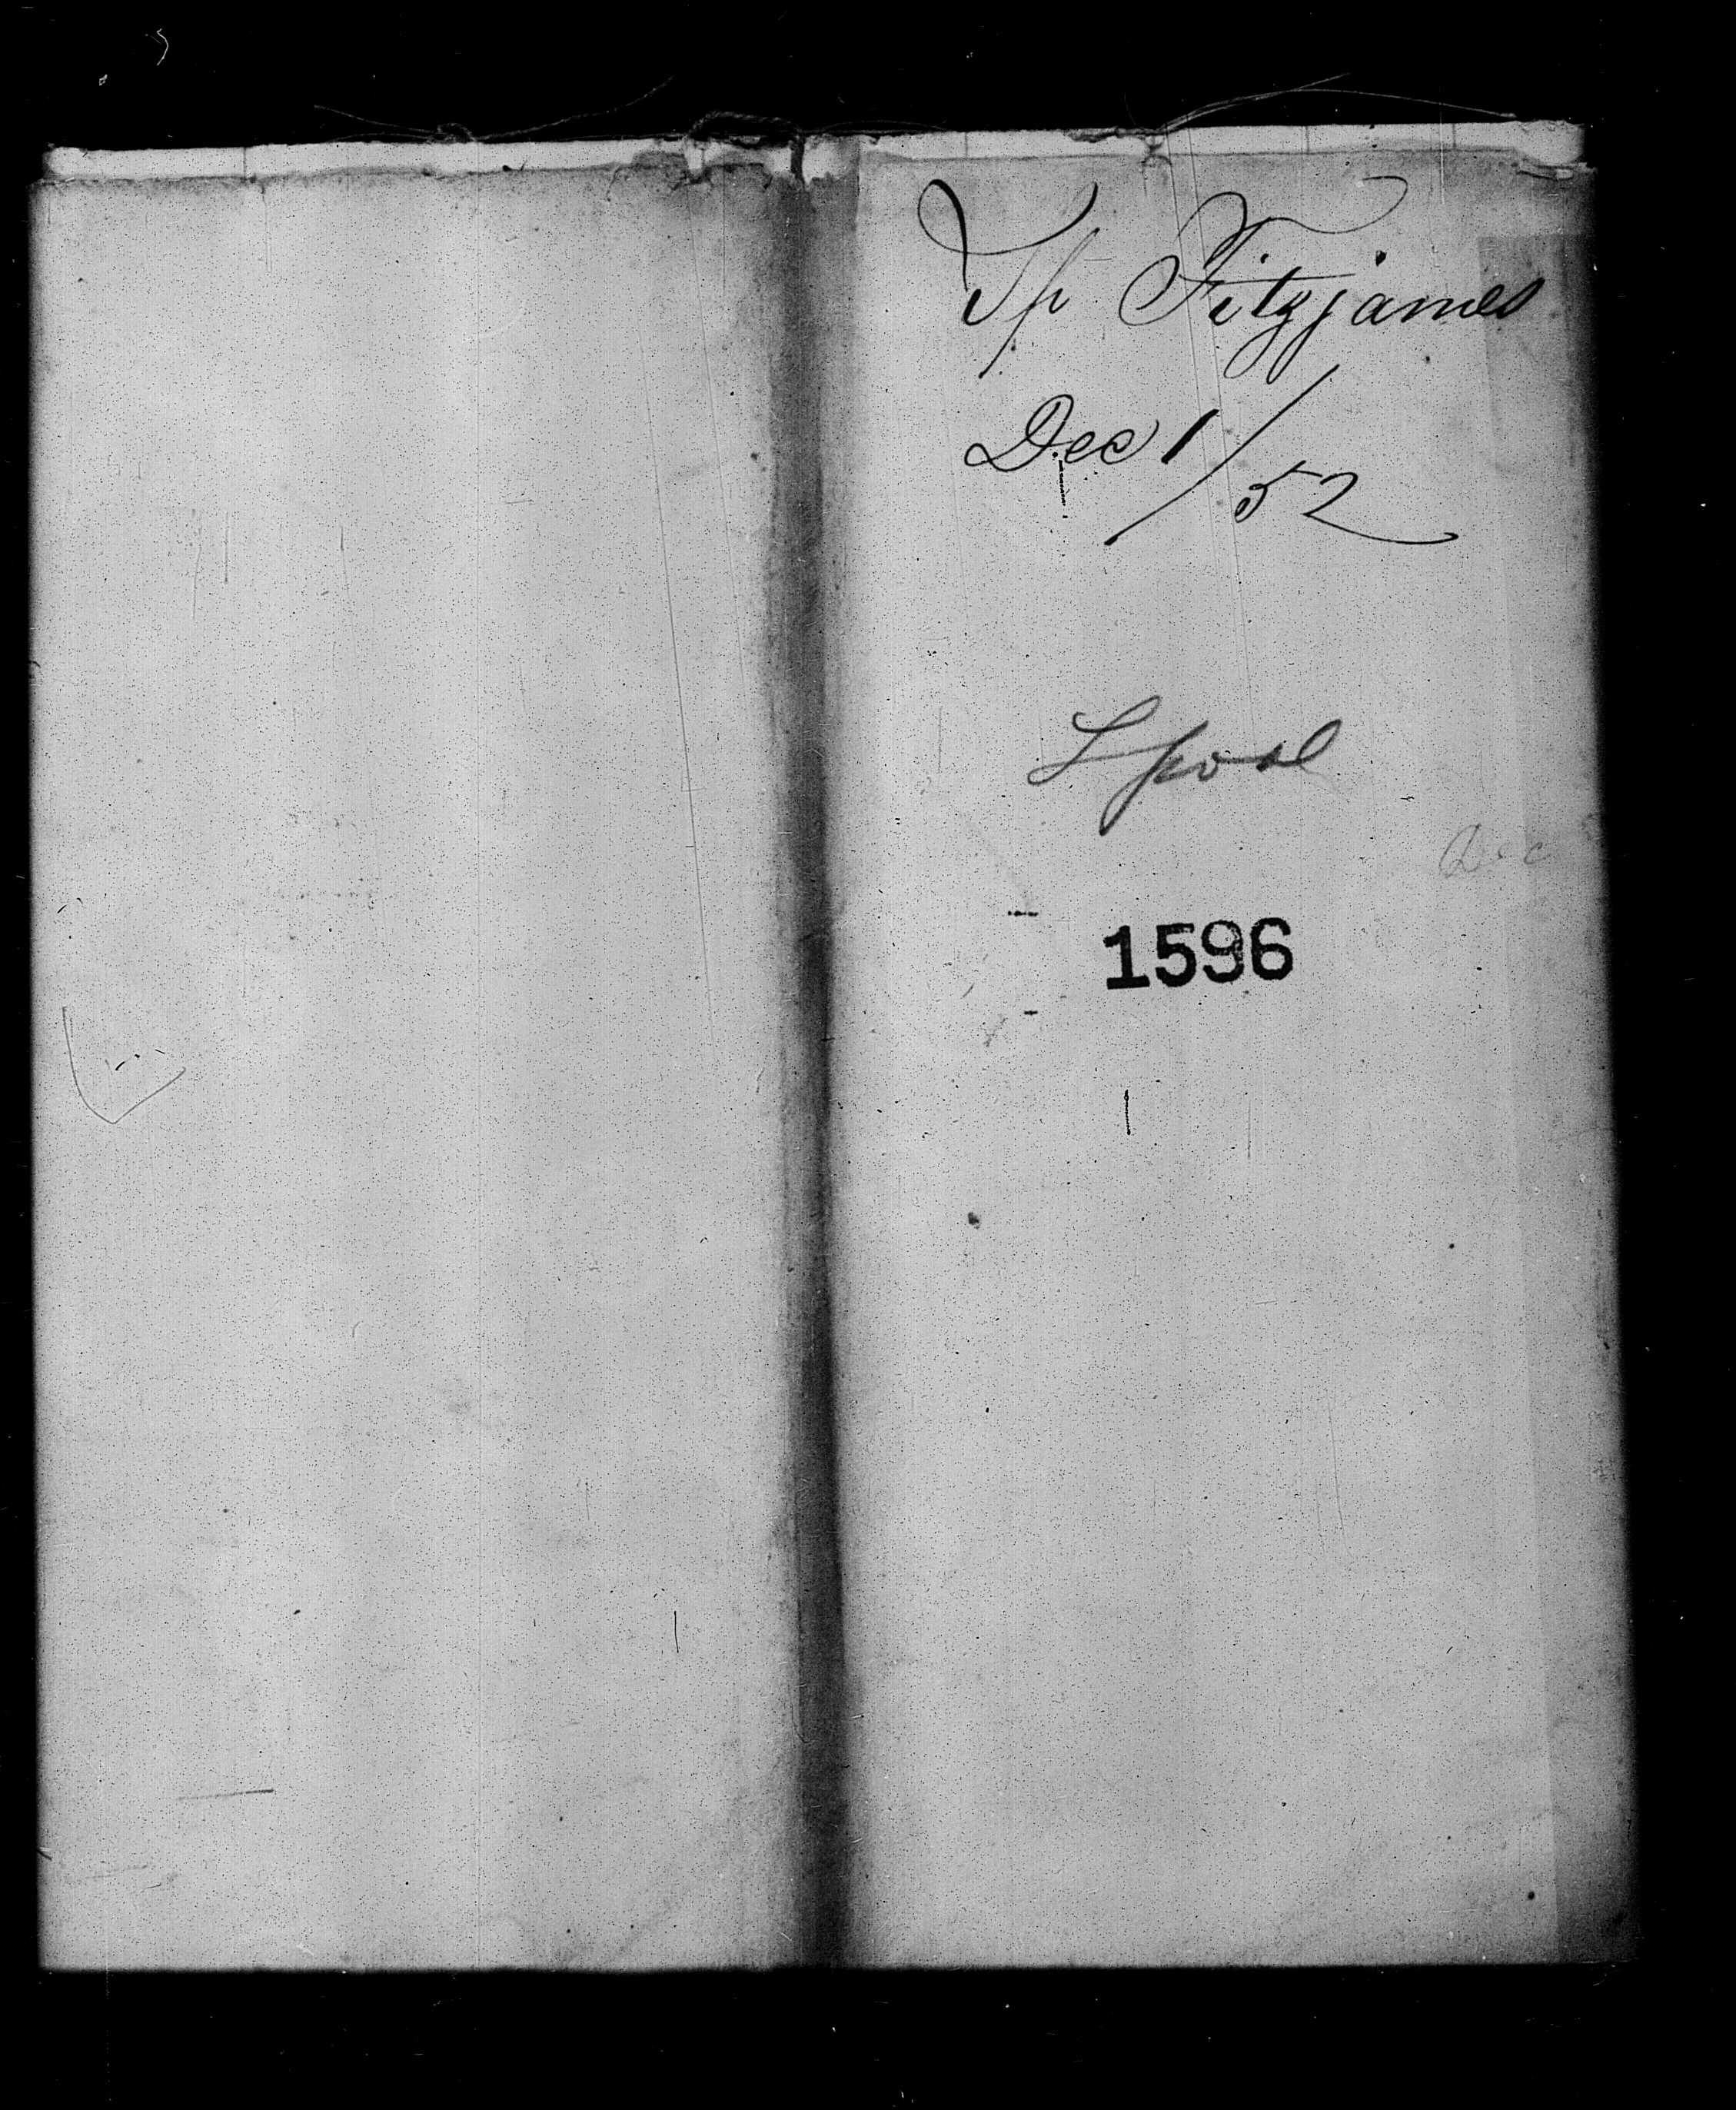 Sp Fitzjames
Dec 1/52
Lpool
Dec
1596